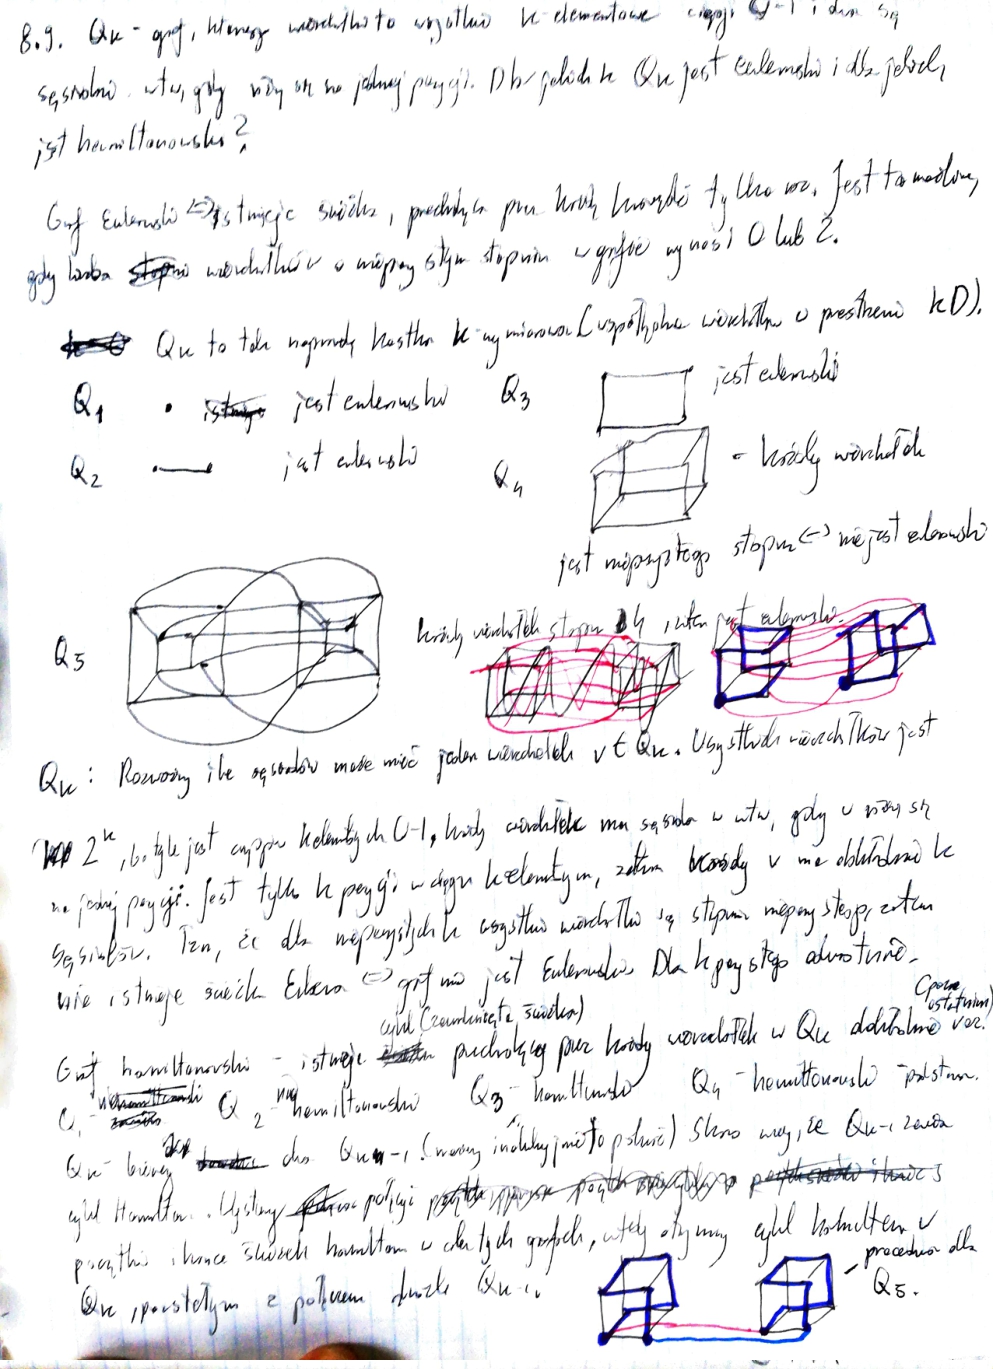 8.9. Qk - graf, którego wierzchołki to wszystkie k-elementowe ciągi 0-1 i dwa są
sąsiednie wtw, gdy różnią się na jednej pozycji. Dla jakich k Qk jest eulerowski i dla jakich
jest hamiltonowski?
Graf Eulerowski <=> istnieje ścieżka, przechodząca przez każdą krawędź tylko raz. Jest to możliwe,
gdy liczba wierzchołków o nieparzystym stopniu w grafie wynosi 0 lub 2.
Qk to tak naprawdę kostka k-wymiarowa (współrzędne wierzchołków w przestrzeni kD).
Q1 jest eulerowski Q3 jest eulerowski
Q2 jest eulerowski Q4 - każdy wierzchołek
jest nieparzystego stopnia <=> nie jest eulerowski
Q5 każdy wierzchołek stopnia 4, jest eulerowski.
Qk: Rozważmy ile sąsiadów może mieć jeden wierzchołek v ∈ Qk. Wszystkich wierzchołków jest
2^k, bo tyle jest ciągów k elementowych 0-1, każdy wierzchołek ma sąsiada w wtw, gdy v różni się
na jednej pozycji. Jest tylko k pozycji w ciągu k elementowym, zatem każdy v ma dokładnie k
sąsiadów. Tzn, że dla nieparzystych k wszystkie wierzchołki są stopnia nieparzystego, zatem
nie istnieje ścieżka Eulera <=> graf nie jest Eulerowski. Dla k parzystego odwrotnie.
cykl (zamknięta ścieżka) (poza ostatnim)
Graf hamiltonowski - istnieje przechodzący przez każdy wierzchołek w Qk dokładnie raz.
Q1 - Q2 - nie hamiltonowski Q3 - hamiltonowski Q4 - hamiltonowski
Qk - dla Qk-1 Skoro wiemy, że Qk-1 zawiera
cykl Hamiltona.
początki i końce ścieżek hamiltona w obu tych grafach, wtedy otrzymamy cykl hamiltona w
Qk, powstałym z połączenia dwóch Qk-1.
procedura dla
Q5.